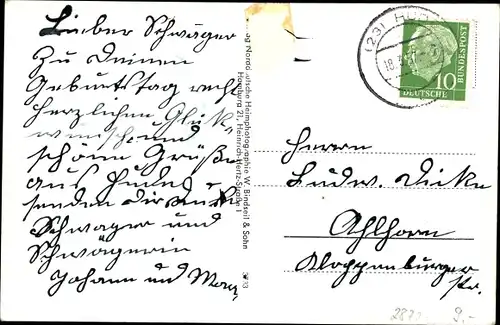 Lieber Schwager
Zu Deinem
Geburtstag recht
herzlichen Glück-
wunsch und
schöne Grüße
aus Hude
senden dir
Schwager und
Schwägerin
Johann und
Norddeutsche Heimphotographie W. Bindseil & Sohn
Hamburg 21, Heinrich-Hertz-Straße
(23) HUDE
18.3.
DEUTSCHE BUNDESPOST
10
Herrn
Ludw. Dicke
Ahlhorn
Kloppenburger
str.
9,-